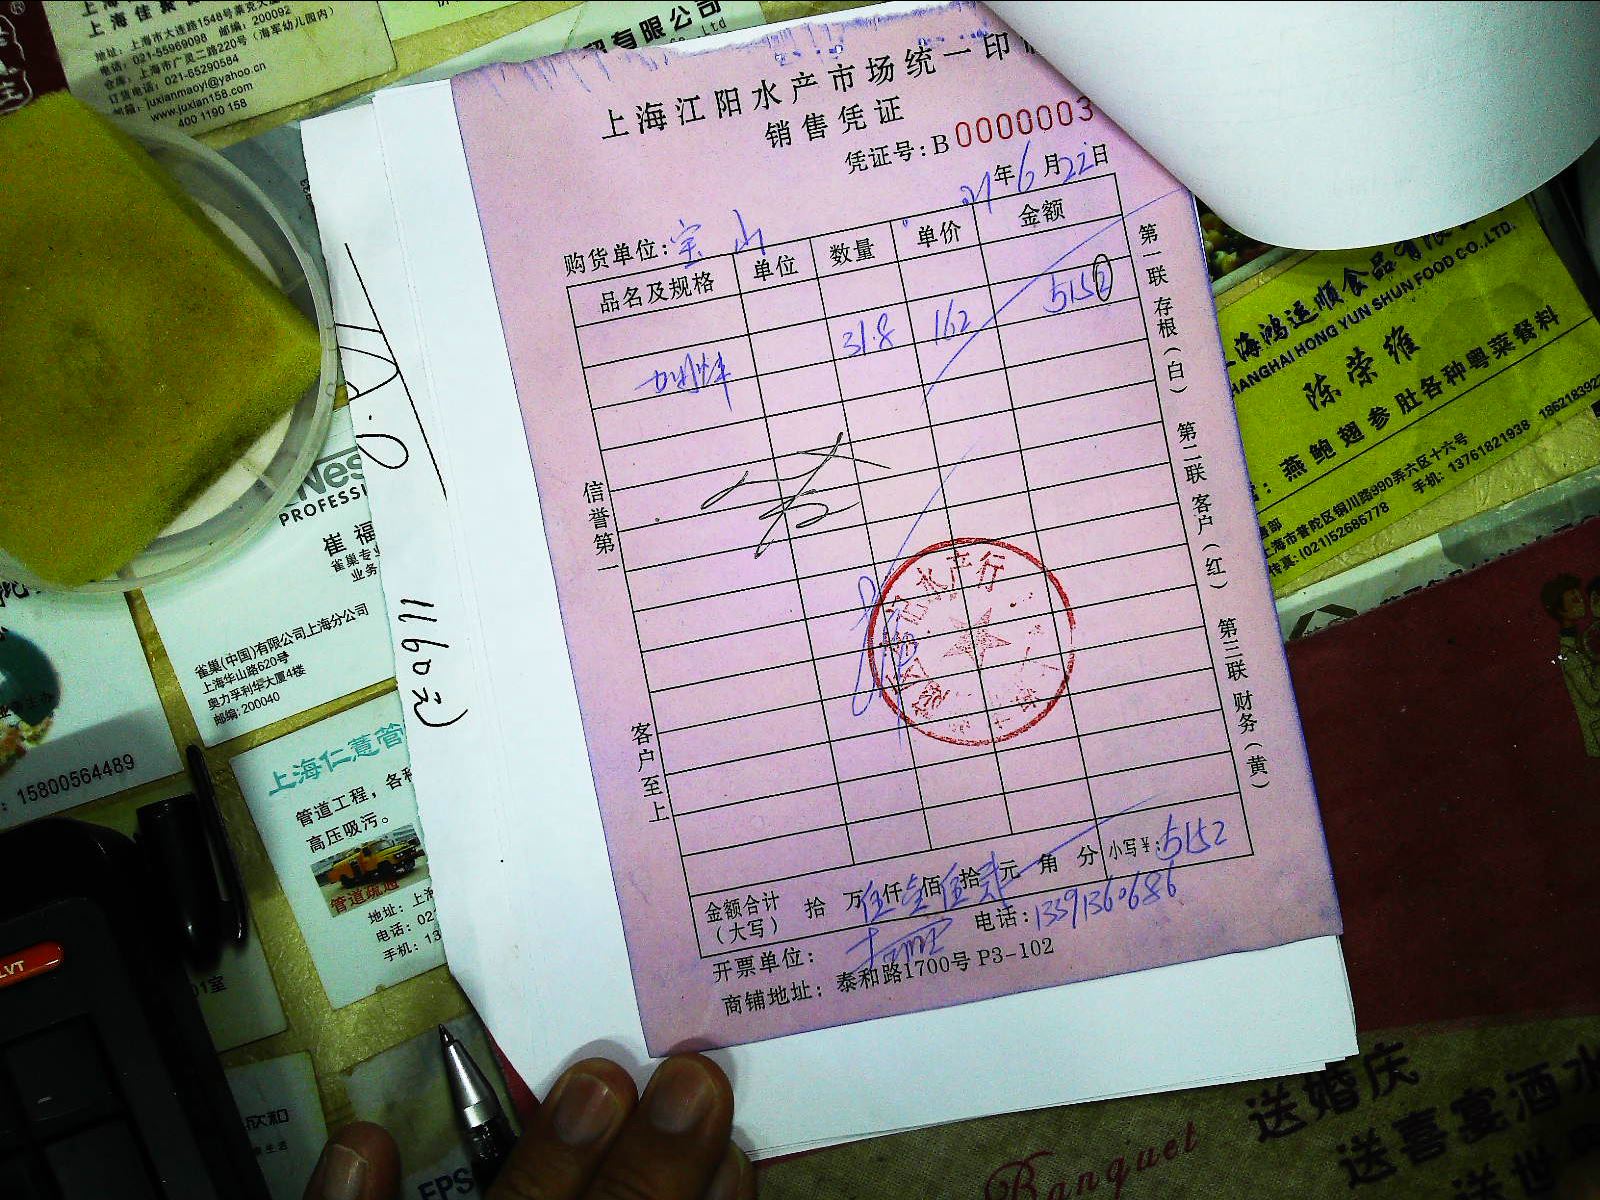 地址：上海市大连路1548号莱克大厦
电话：021-55969098 邮编：200092
仓库：上海市广灵二路220号（海军幼儿园内）
订货电话：021-65290584
邮箱：juxianmaoyi@yahoo.cn
www.juxian158.com
400 1190 158
贸有限公司
上海江阳水产市场统一印
销售凭证
凭证号：B 0000003
21年6月22日
购货单位：宝山
品名及规格 单位 数量 单价 金额
31.8 162 5152
信誉第一
客户至上
第一联 存根（白） 第二联 客户（红） 第三联 财务（黄）
水产行
金额合计（大写） 拾 万伍仟壹佰伍拾贰元 角 分 小写￥：5152
开票单位： 电话：13391360686
商铺地址：泰和路1700号 P3-102
1160元
Nes
PROFESSI
崔福
雀巢专业
业务
雀巢(中国)有限公司上海分公司
上海华山路620号
奥力孚利华大厦4楼
邮编：200040
15800564489
上海仁薏管
管道工程，各种
高压吸污。
管道疏通
地址：上海
电话：02
手机：13
LVT
01室
欣和
EPS
上海鸿运顺食品有限
SHANGHAI HONG YUN SHUN FOOD CO.,LTD.
陈荣维
燕鲍翅参肚各种粤菜餐料
上海市普陀区铜川路990弄六区十六号
传真：(021)52686778
手机：13761821938 1862183927
送婚庆
送喜宴酒水
送世
Banquet